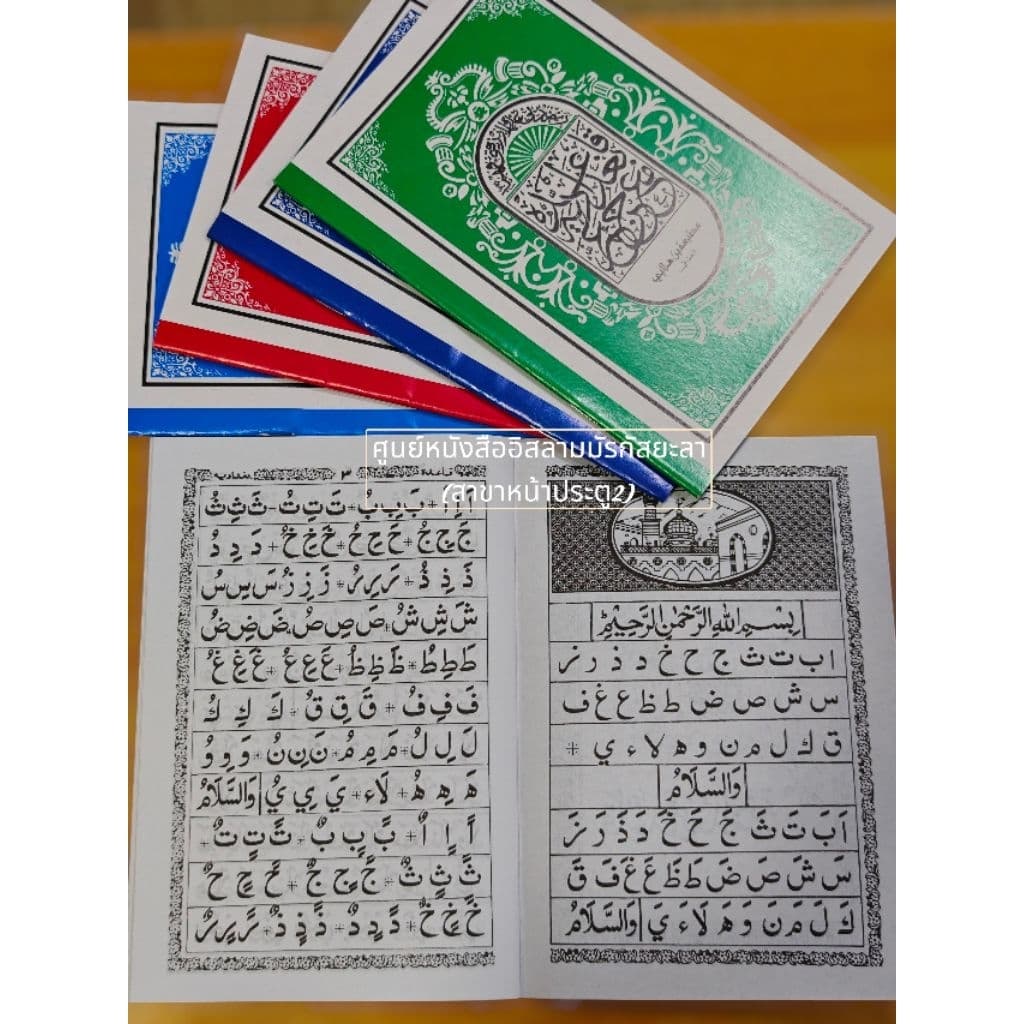 مطبعة بن هلابي
ศูนย์หนังสืออิสลามมัรกัสยะลา
(สาขาหน้าประตู2)
بِسْمِ اللهِ الرَّحْمٰنِ الرَّحِيْمِ
ا ب ت ث ج ح خ د ذ ر ز
س ش ص ض ط ظ ع غ ف
ق ك ل م ن و ه لا ء ي +
وَالسَّلَامُ
اَ بَ تَ ثَ جَ حَ خَ دَ ذَ رَ زَ
سَ شَ صَ ضَ طَ ظَ عَ غَ فَ قَ
كَ لَ مَ نَ وَ هَ لَا ءَ يَ وَالسَّلَامُ
قاعدة ٣ بغدادية
اَ اِ اُ + بَ بِ بُ + تَ تِ تُ + ثَ ثِ ثُ
جَ جِ جُ + حَ حِ حُ + خَ خِ خُ + دَ دِ دُ
ذَ ذِ ذُ + رَ رِ رُ + زَ زِ زُ + سَ سِ سُ
شَ شِ شُ + صَ صِ صُ + ضَ ضِ ضُ
طَ طِ طُ + ظَ ظِ ظُ + عَ عِ عُ + غَ غِ غُ
فَ فِ فُ + قَ قِ قُ + كَ كِ كُ
لَ لِ لُ + مَ مِ مُ + نَ نِ نُ + وَ وِ وُ
هَ هِ هُ + لَاء + يَ يِ يُ وَالسَّلَامُ
اً اٍ اٌ + بً بٍ بٌ + تً تٍ تٌ
ثً ثٍ ثٌ + جً جٍ جٌ + حً حٍ حٌ
خً خٍ خٌ + دً دٍ دٌ + ذً ذٍ ذٌ + رً رٍ رٌ